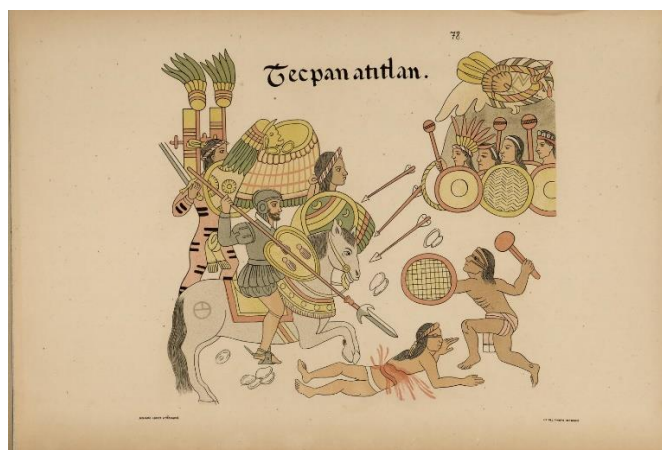 78
Tecpan atitlan.